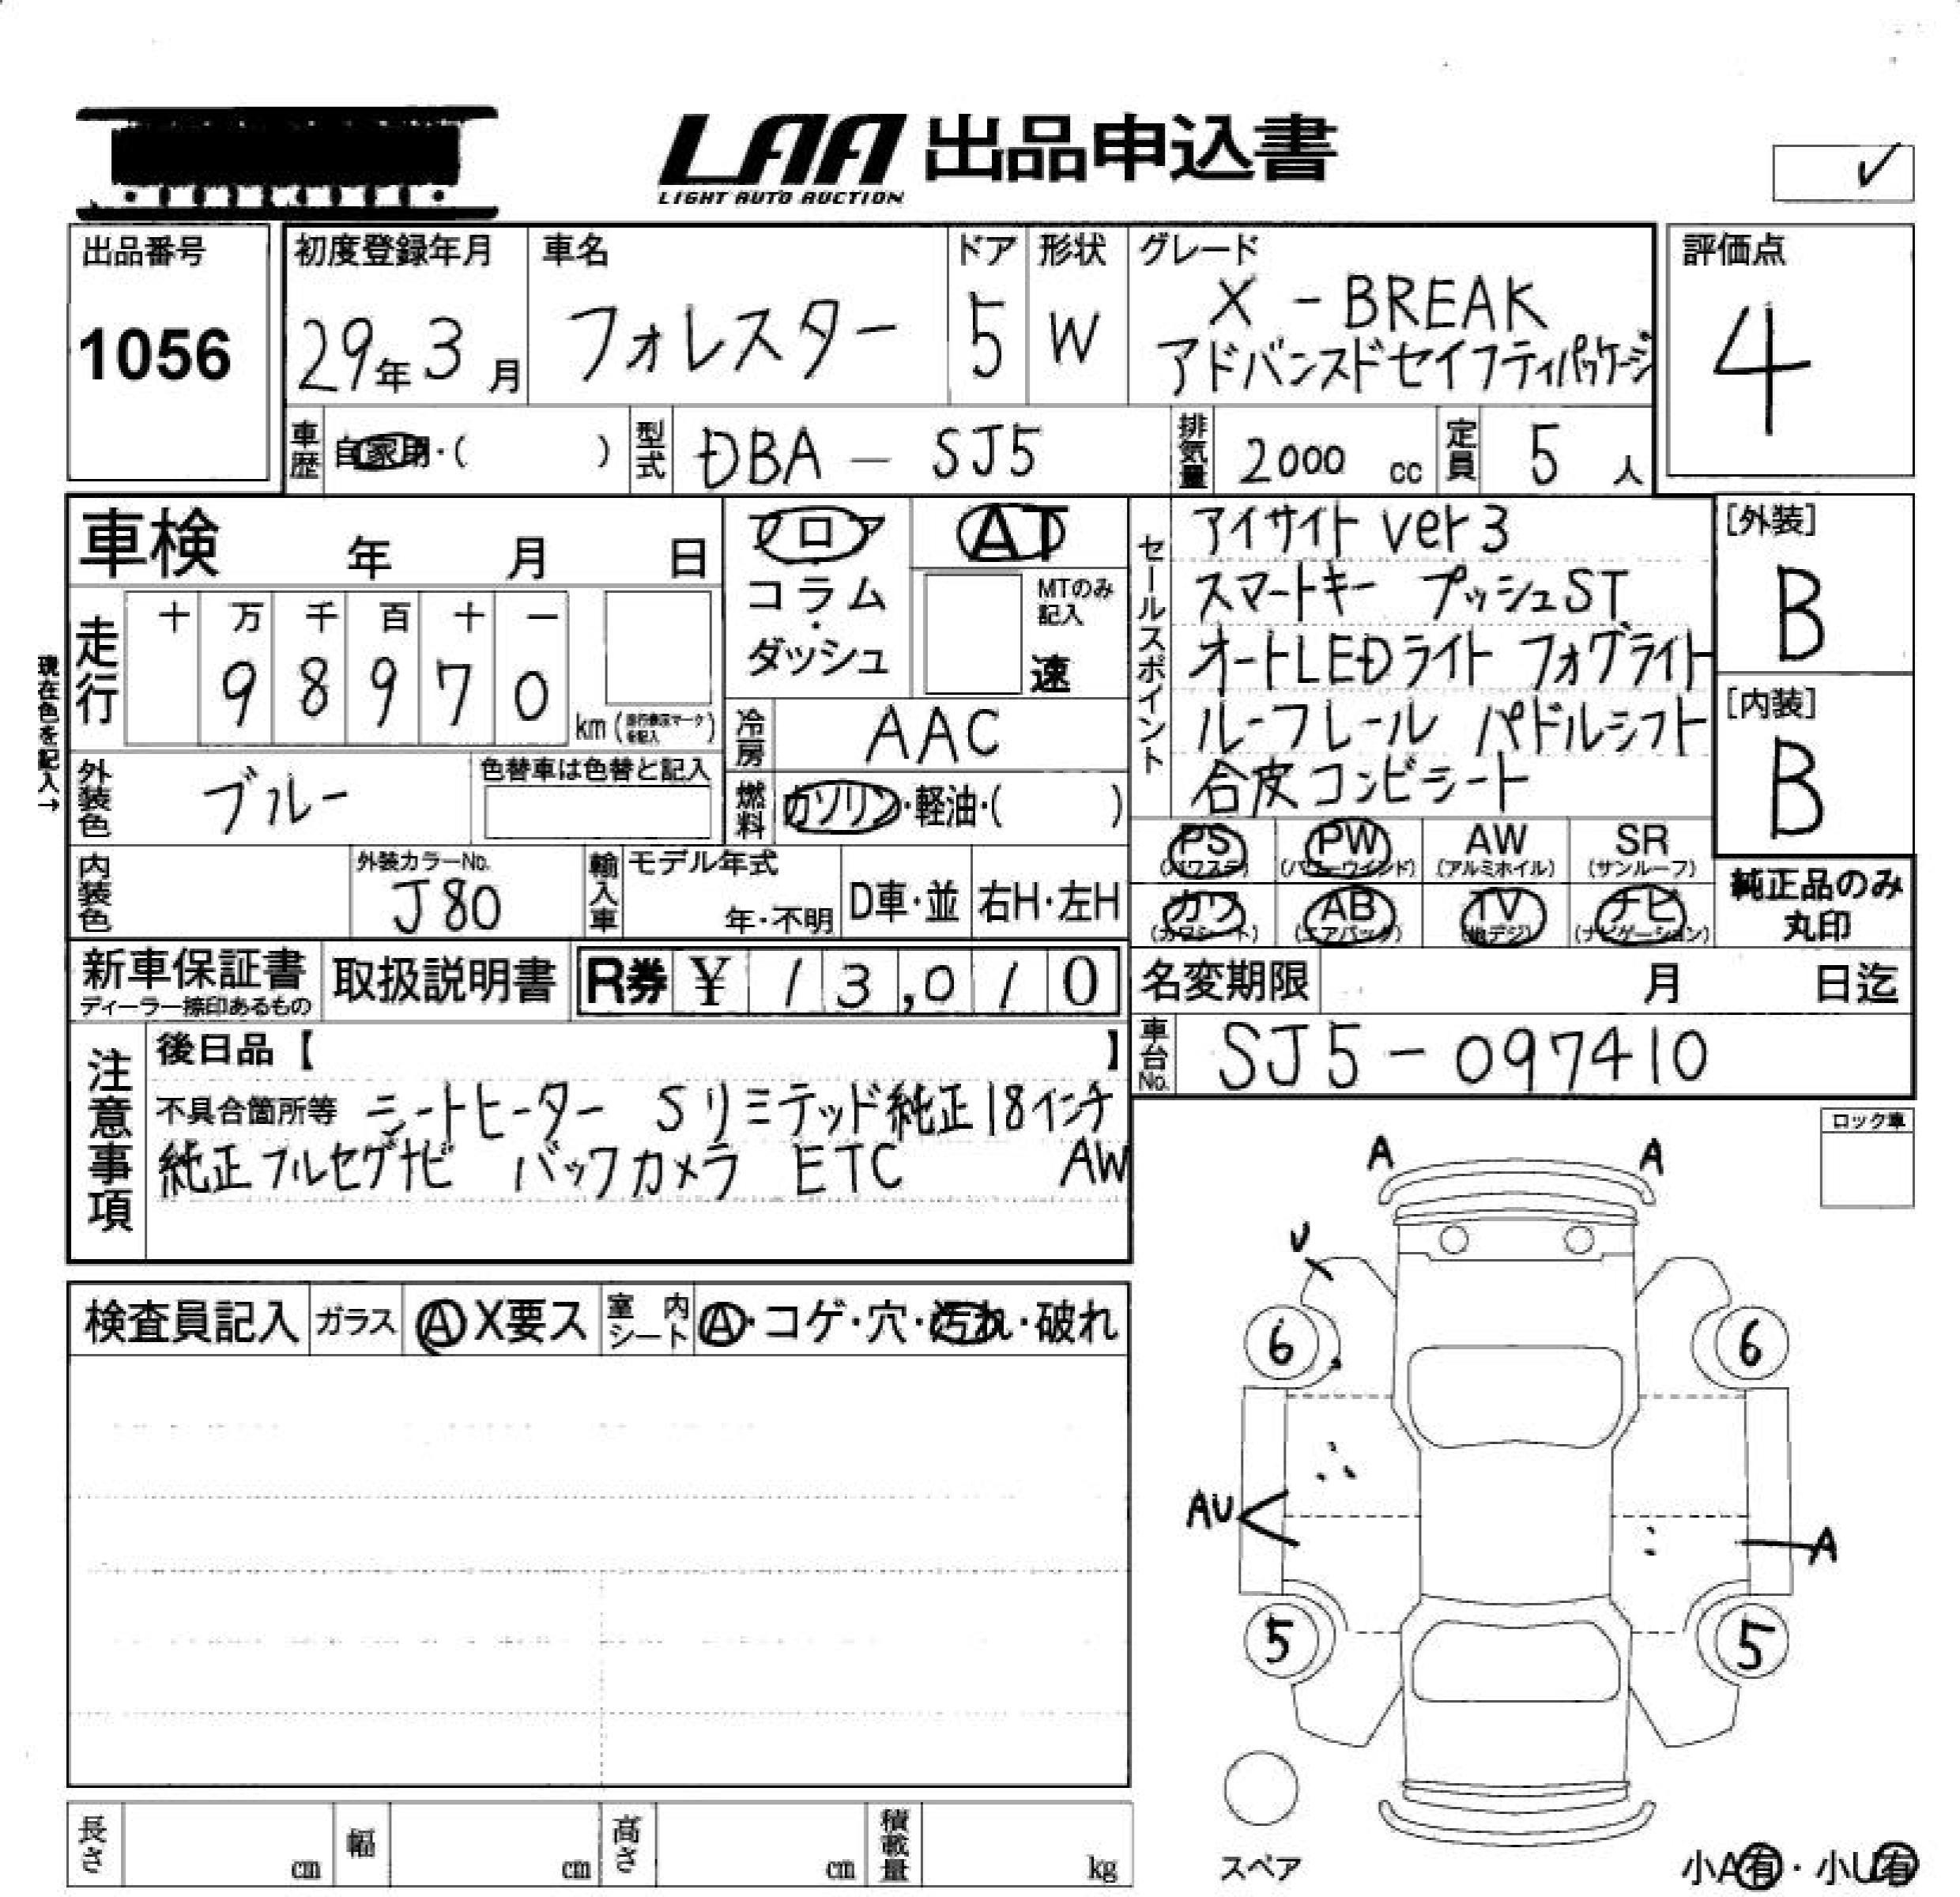 LAA 出品申込書
LIGHT AUTO AUCTION
✓
出品番号
1056
初度登録年月
29年3月
車名
フォレスター
ドア
5
形状
W
グレード
X - BREAK
アドバンスドセイフティパッケージ
評価点
4
車歴
自家用・( )
型式
DBA - SJ5
排気量
2000 cc
定員
5 人
車検 年 月 日
走行
十 万 千 百 十 一
9 8 9 7 0
km (
を記入 )
現在色を記入→
外装色
ブルー
色替車は色替と記入
内装色
外装カラーNo.
J80
フロア
コラム
・
ダッシュ
AT
MTのみ
記入
速
冷房
AAC
燃料
ガソリン・軽油・( )
輸入車
モデル年式
年・不明
D車・並
右H・左H
セールスポイント
アイサイト ver3
スマートキー プッシュST
オートLEDライト フォグライト
ルーフレール パドルシフト
合皮コンビシート
[外装]
B
[内装]
B
PS
(パワステ)
PW
(パワーウインド)
AW
(アルミホイル)
SR
(サンルーフ)
カワ
(カワシート)
AB
(エアバック)
TV
(地デジ)
ナビ
(ナビゲーション)
純正品のみ
丸印
新車保証書
ディーラー捺印あるもの
取扱説明書
R券 ¥ 13,010
名変期限 月 日迄
車台No.
SJ5-097410
注意事項
後日品【 】
不具合箇所等 シートヒーター Sリミテッド純正18インチ
純正フルセグナビ バックカメラ ETC AW
ロック車
検査員記入
ガラス
A X要ス
室内
シート
A・コゲ・穴・汚れ・破れ
A A
U
6 6
AU
A
5 5
スペア
小A有・小U有
長さ cm
幅 cm
高さ cm
積載量 kg